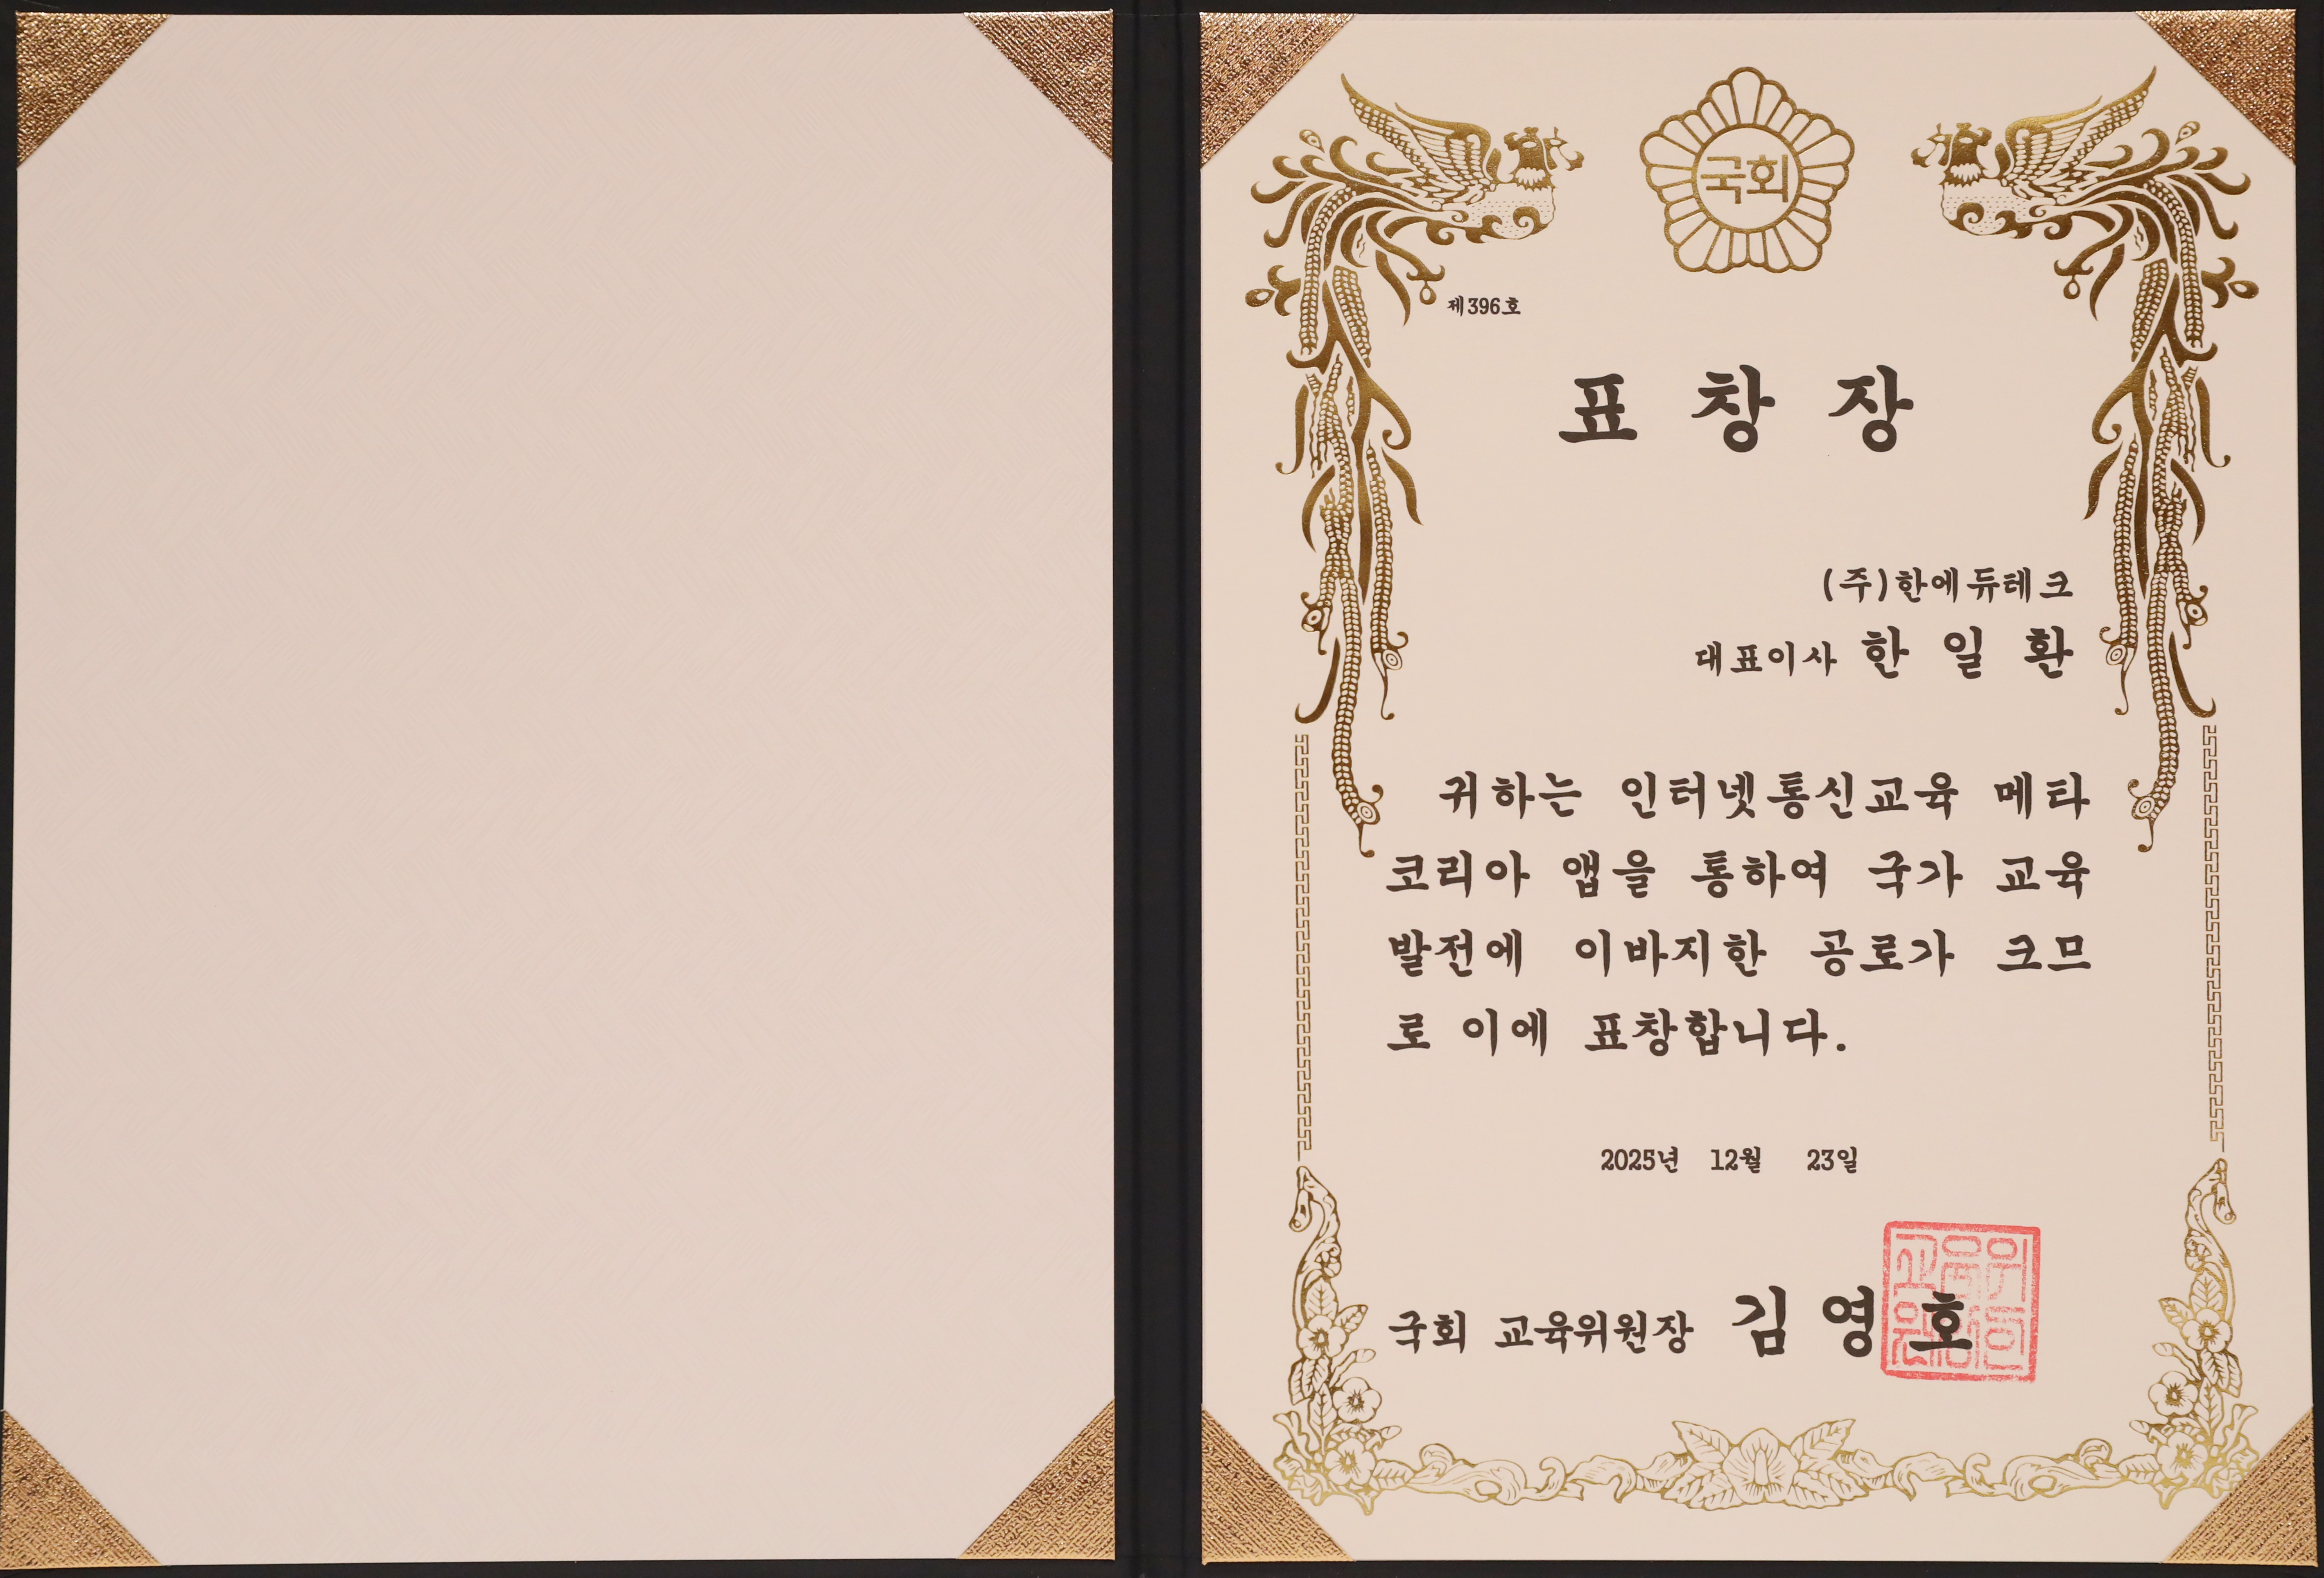 국회
제396호
표 창 장
(주)한에듀테크
대표이사 한 일 환
귀하는 인터넷통신교육 메타
코리아 앱을 통하여 국가 교육
발전에 이바지한 공로가 크므
로 이에 표창합니다.
2025년 12월 23일
국회 교육위원장 김 영 호